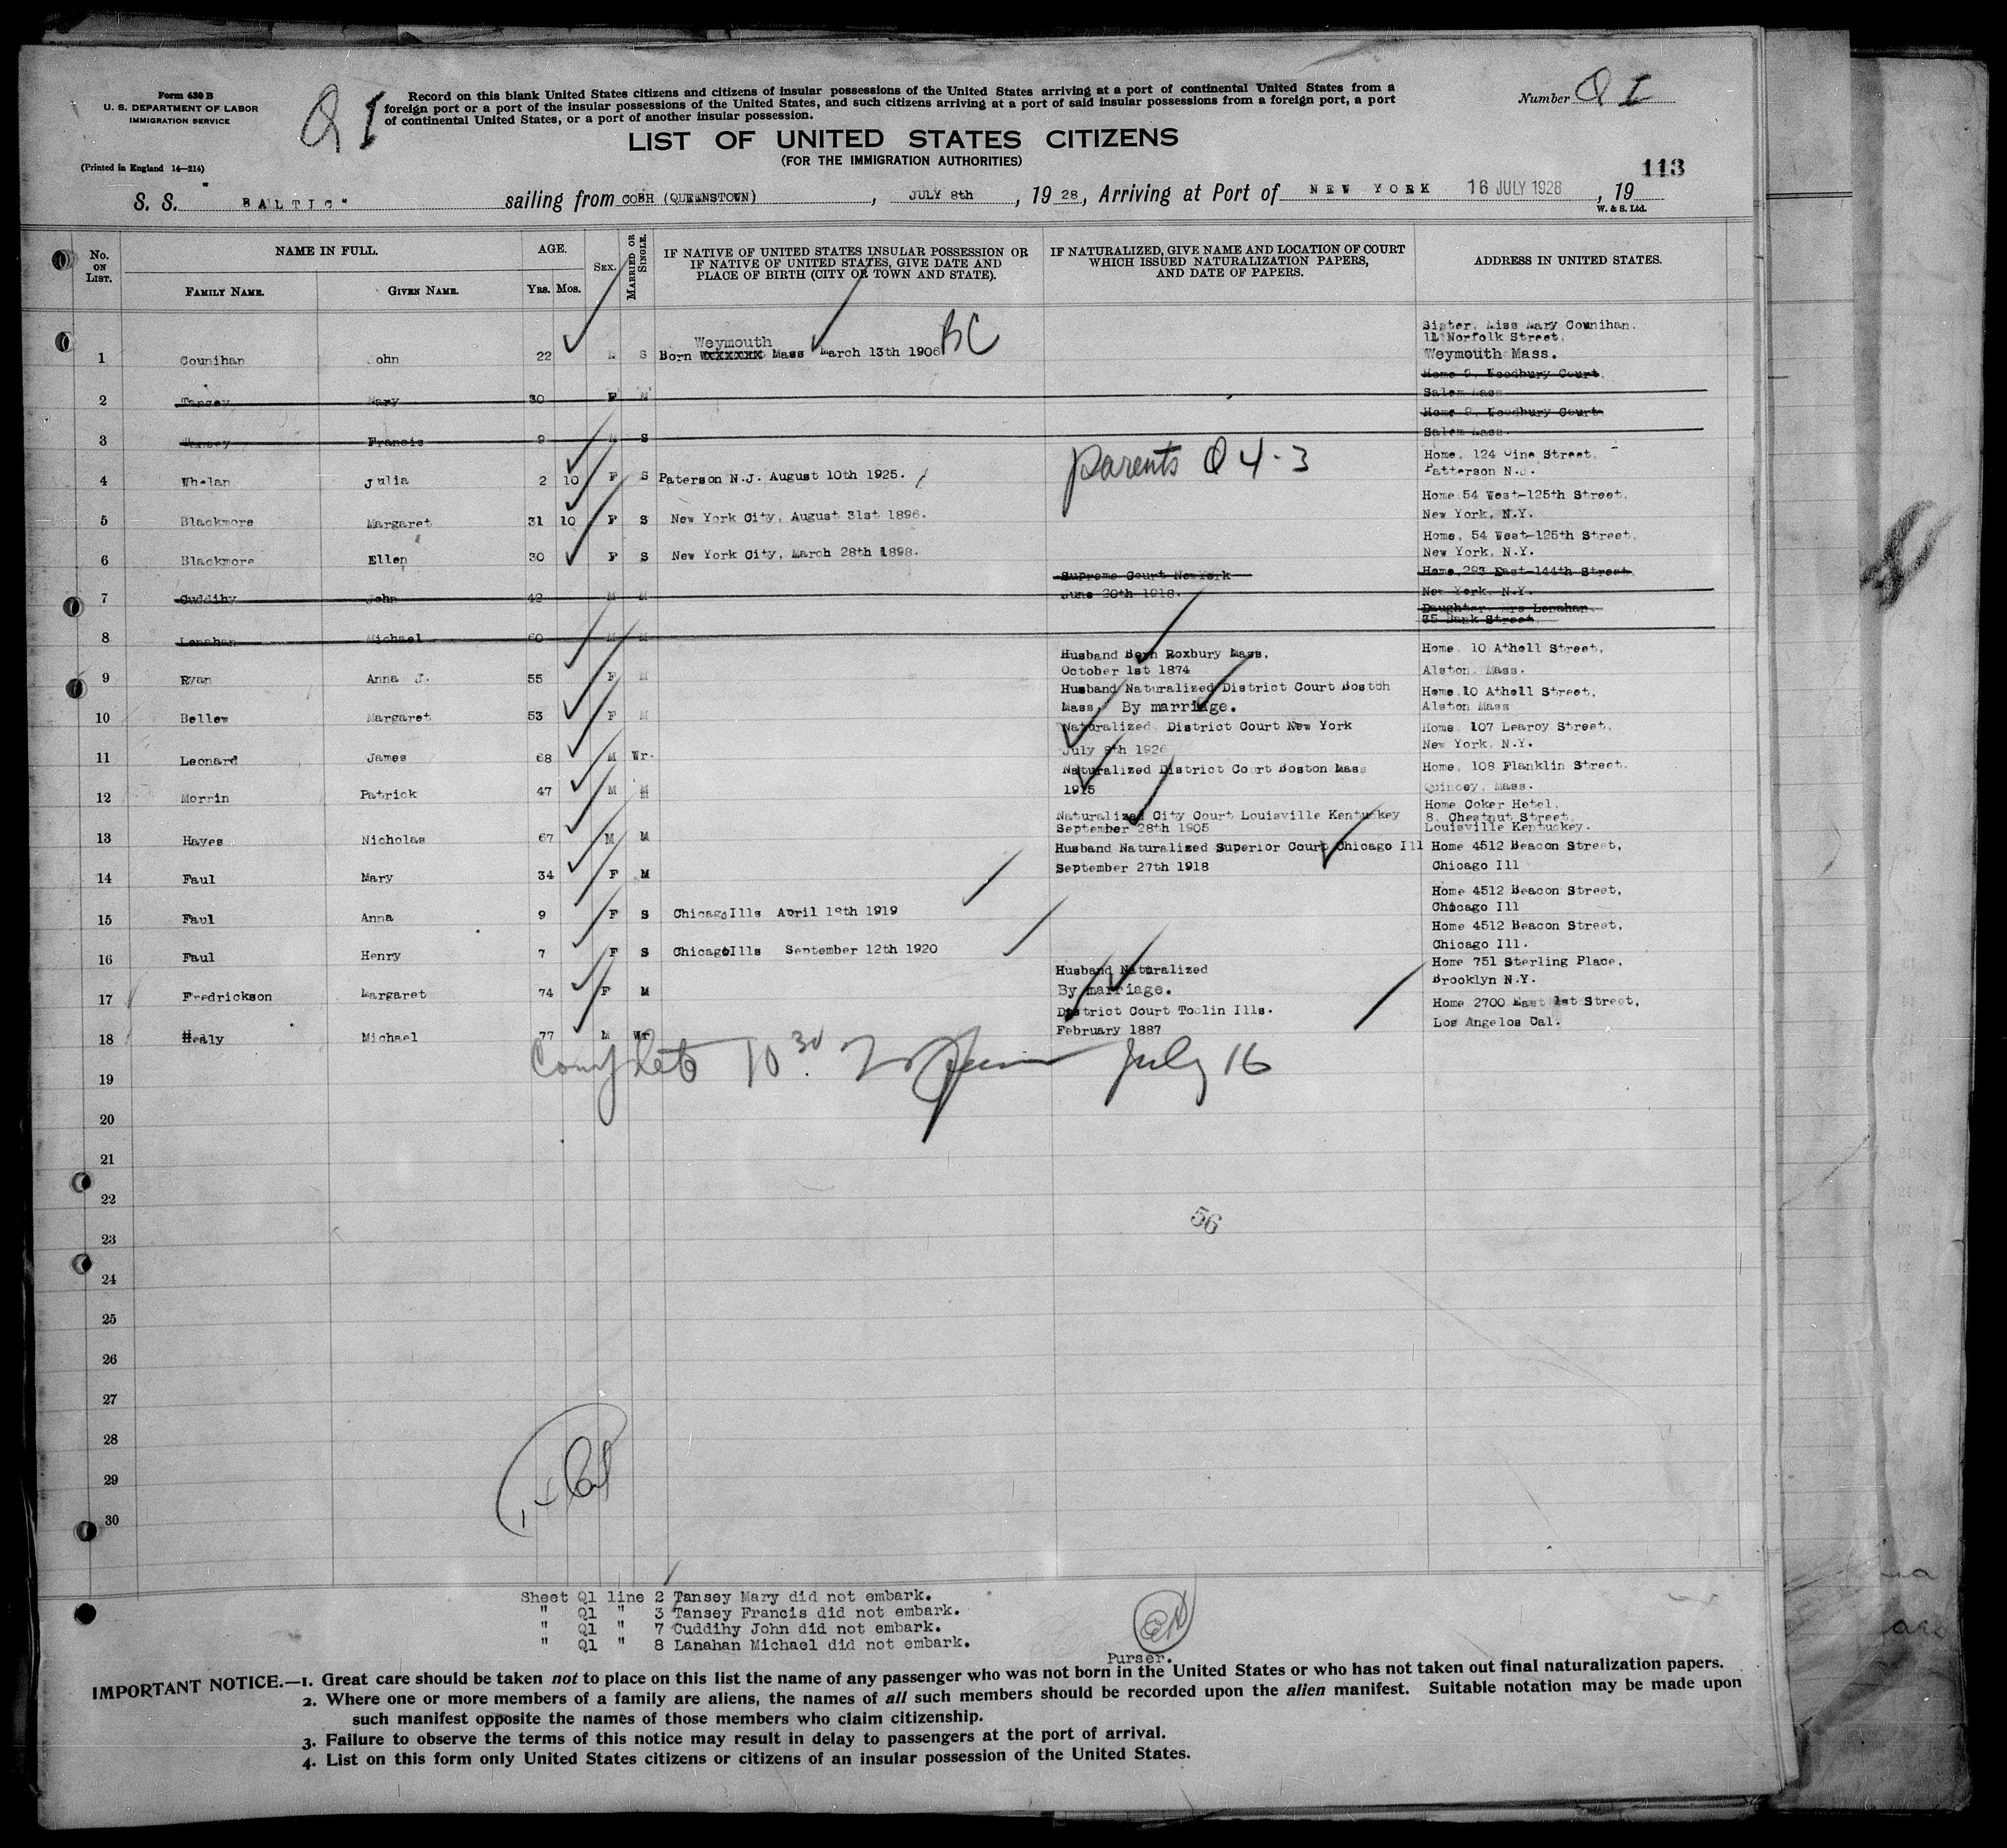 Form 630 B
U. S. DEPARTMENT OF LABOR
IMMIGRATION SERVICE
(Printed in England 14—214)
Q I
Record on this blank United States citizens and citizens of insular possessions of the United States arriving at a port of continental United States from a
foreign port or a port of the insular possessions of the United States, and such citizens arriving at a port of said insular possessions from a foreign port, a port
of continental United States, or a port of another insular possession.
Number Q I
LIST OF UNITED STATES CITIZENS
(FOR THE IMMIGRATION AUTHORITIES)
113
S. S. "BALTIC" sailing from COBH (QUEENSTOWN), JULY 8th, 1928, Arriving at Port of NEW YORK 16 JULY 1928, 19
W. & S. Ltd.
No. ON LIST. NAME IN FULL. FAMILY NAME. GIVEN NAME. AGE. YRS. MOS. SEX. MARRIED OR SINGLE.
IF NATIVE OF UNITED STATES INSULAR POSSESSION OR
IF NATIVE OF UNITED STATES, GIVE DATE AND
PLACE OF BIRTH (CITY OR TOWN AND STATE).
IF NATURALIZED, GIVE NAME AND LOCATION OF COURT
WHICH ISSUED NATURALIZATION PAPERS,
AND DATE OF PAPERS.
ADDRESS IN UNITED STATES.
Sister, Miss Mary Counihan,
11 Norfolk Street,
Weymouth BC
1 Counihan John 22 M S Born Mass March 13th 1906 Weymouth Mass.
Home 9, Woodbury Court,
2 Tansey Mary 30 F M Salem Mass
Home 9, Woodbury Court
3 Tansey Francis 9 M S Salem Mass.
parents Q 4-3
Home, 124 Vine Street,
4 Whelan Julia 2 10 F S Paterson N.J. August 10th 1925. Patterson N.J.
Home 54 West-125th Street,
5 Blackmore Margaret 31 10 F S New York City, August 31st 1896. New York, N.Y.
Home, 54 West-125th Street,
6 Blackmore Ellen 30 F S New York City, March 28th 1898. New York, N.Y.
Supreme Court New York Home, 293 East-144th Street,
7 Cuddihy John 42 M M June 20th 1918. New York, N.Y.
Daughter, Mrs Lenahan,
35 Bank Street
8 Lenahan Michael 60 M M
Husband Born Roxbury Mass, Home, 10 Athell Street,
9 Ryan Anna J. 55 F M October 1st 1874 Alston, Mass.
Husband Naturalized District Court Boston Home, 10 Athell Street,
10 Bellew Margaret 53 F M Mass. By marriage. Alston Mass
Naturalized, District Court New York Home, 107 Learoy Street,
11 Leonard James 68 M Wr. July 8th 1926 New York, N.Y.
Naturalized District Court Boston Mass Home, 108 Flanklin Street,
12 Morrin Patrick 47 M M 1915 Quincey, Mass.
Home Coker Hotel,
Naturalized City Court Louisville Kentuckey 8, Chestnut Street,
13 Hayes Nicholas 67 M M September 28th 1905 Louisville Kentuckey.
Husband Naturalized Superior Court Chicago Ill Home 4512 Beacon Street,
14 Faul Mary 34 F M September 27th 1918 Chicago Ill
Home 4512 Beacon Street,
15 Faul Anna 9 F S Chicago Ills April 18th 1919 Chicago Ill
Home 4512 Beacon Street,
16 Faul Henry 7 F S Chicago Ills September 12th 1920 Chicago Ill.
Husband Naturalized Home 751 Sterling Place,
17 Fredrickson Margaret 74 F M By marriage. Brooklyn N.Y.
District Court Toclin Ills. Home 2700 East 1st Street,
18 Healy Michael 77 M Wr February 1887 Los Angelos Cal.
Complete 10 30 July 16
19
20
21
22
23
56
24
25
26
27
28
29
30
Sheet Q1 line 2 Tansey Mary did not embark.
" Q1 " 3 Tansey Francis did not embark.
" Q1 " 7 Cuddihy John did not embark.
" Q1 " 8 Lanahan Michael did not embark.
Purser.
IMPORTANT NOTICE.—1. Great care should be taken not to place on this list the name of any passenger who was not born in the United States or who has not taken out final naturalization papers.
2. Where one or more members of a family are aliens, the names of all such members should be recorded upon the alien manifest. Suitable notation may be made upon
such manifest opposite the names of those members who claim citizenship.
3. Failure to observe the terms of this notice may result in delay to passengers at the port of arrival.
4. List on this form only United States citizens or citizens of an insular possession of the United States.